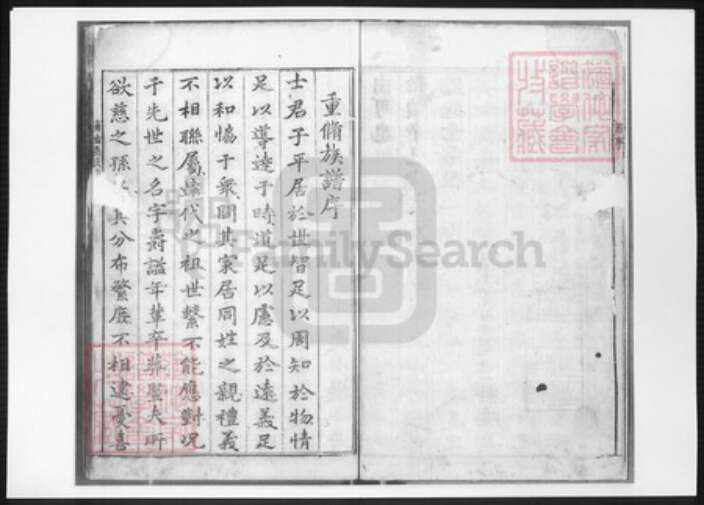 重脩族譜序
士君子平居於世智足以周知於物情
足以導達于時道足以慮及於遠義足
以和恊于衆閒其家居同姓之親禮義
不相聯屬遠代之祖世繫不能應對况
于先世之名字壽謚年葬夫所
欲慈之孫分布繁庶不相逮憂喜
FamilySearch